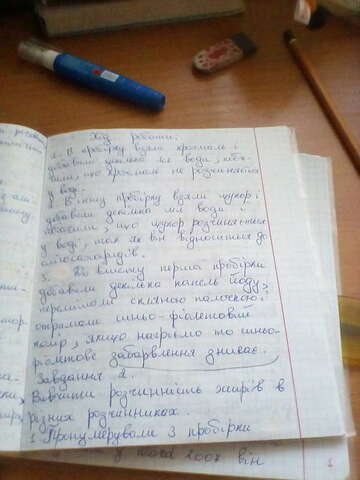 Хід роботи:
1. В пробірку взяли крохмаль і
добавили декілька мл води,
що крохмаль не розчиняється
у воді.
2. В іншу пробірку взяли цукор і
добавили декілька мл води і
що цукор розчиняється
у воді, так як він відноситься до
олігосахаридів.
3. До вмісту першої пробірки
добавили декілька капель йоду,
перемішали скляною палочкою і
отримали синьо-фіолетовий
колір, якщо нагріємо то синьо-
фіолетове забарвлення зникає.
Завдання 2.
Вивчити розчинність жирів в
різних розчинниках.
1 Пронумерували 3 пробірки
у word 2007 він
1